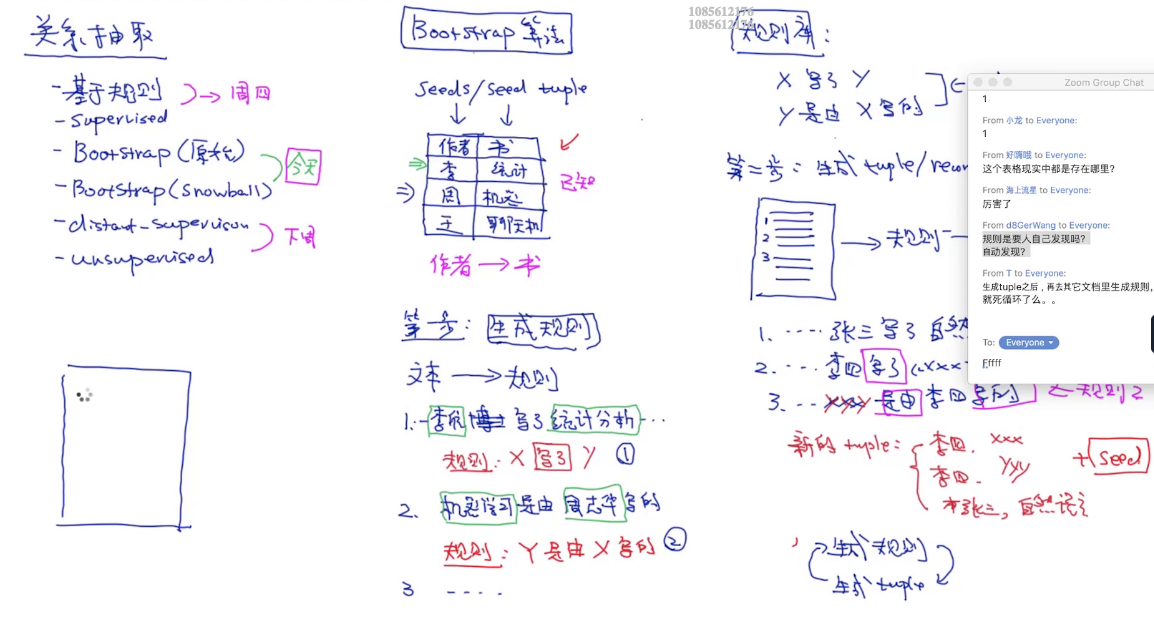 关系抽取
- 基于规则 → 周四
- Supervised
- Bootstrap (原始)
今天
- Bootstrap (Snowball)
- distant-supervison
下周
- unsupervised
Bootstrap 算法
Seeds/seed tuple
作者 书
李 统计
周 机器
王 聊天机
已知
作者 → 书
第一步: 生成规则
文本 → 规则
1. 李航 写了 统计分析 ...
规则: X 写了 Y ①
2. 机器学习 是由 周志华 写的
规则: Y 是由 X 写的 ②
3 ....
1085612176
1085612176
规则库:
X 写了 Y
Y 是由 X 写的
第二步: 生成 tuple/recor
1
2
3
→ 规则一
1. .... 张三 写了 自然
2. .... 李四 写了 《xxx
3. ... 是由 李四 写的 规则2
新的 tuple: 李四. xxx
李四. yyy
张三, 自然语言
+ Seed
生成规则
生成 tuple
Zoom Group Chat
1
From 小龙 to Everyone:
1
From 好嗨哦 to Everyone:
这个表格现实中都是存在哪里?
From 海上流星 to Everyone:
厉害了
From d8GerWang to Everyone:
规则是要人自己发现吗?
自动发现?
From T to Everyone:
生成tuple之后,再去其它文档里生成规则,
就死循环了么。。
To: Everyone
Fffff